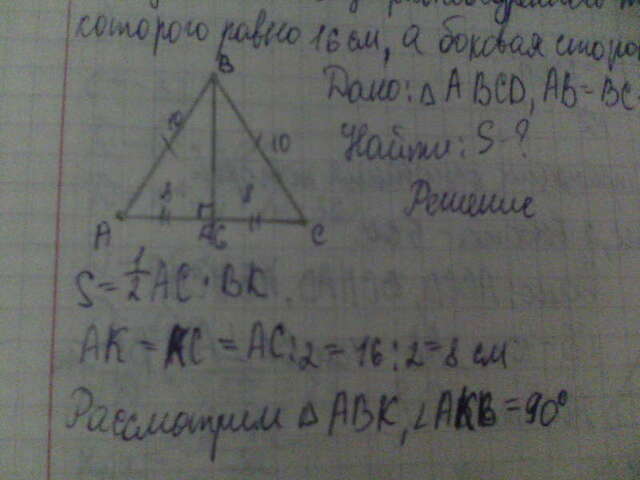 равнобедренного
которого равно 16 см, а боковая
B
Дано: △ABCD, AB=BC
10 10
Найти: S-?
8 8
Решение
A C C
S=1/2 AC·BK
AK = KC = AC:2=16:2=8 см
Рассмотрим △ABK, ∠AKB=90°